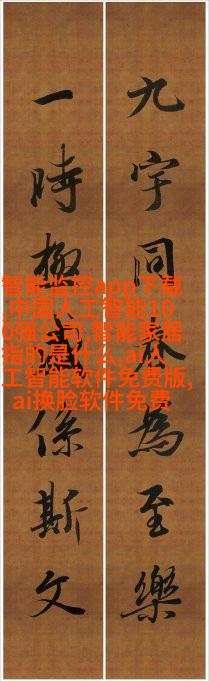 九宇同為至樂
一時係斯文
智能监控app下载
,中国人工智能10
0强公司,智能家居
指的是什么,ai人
工智能软件免费版,
ai换脸软件免费